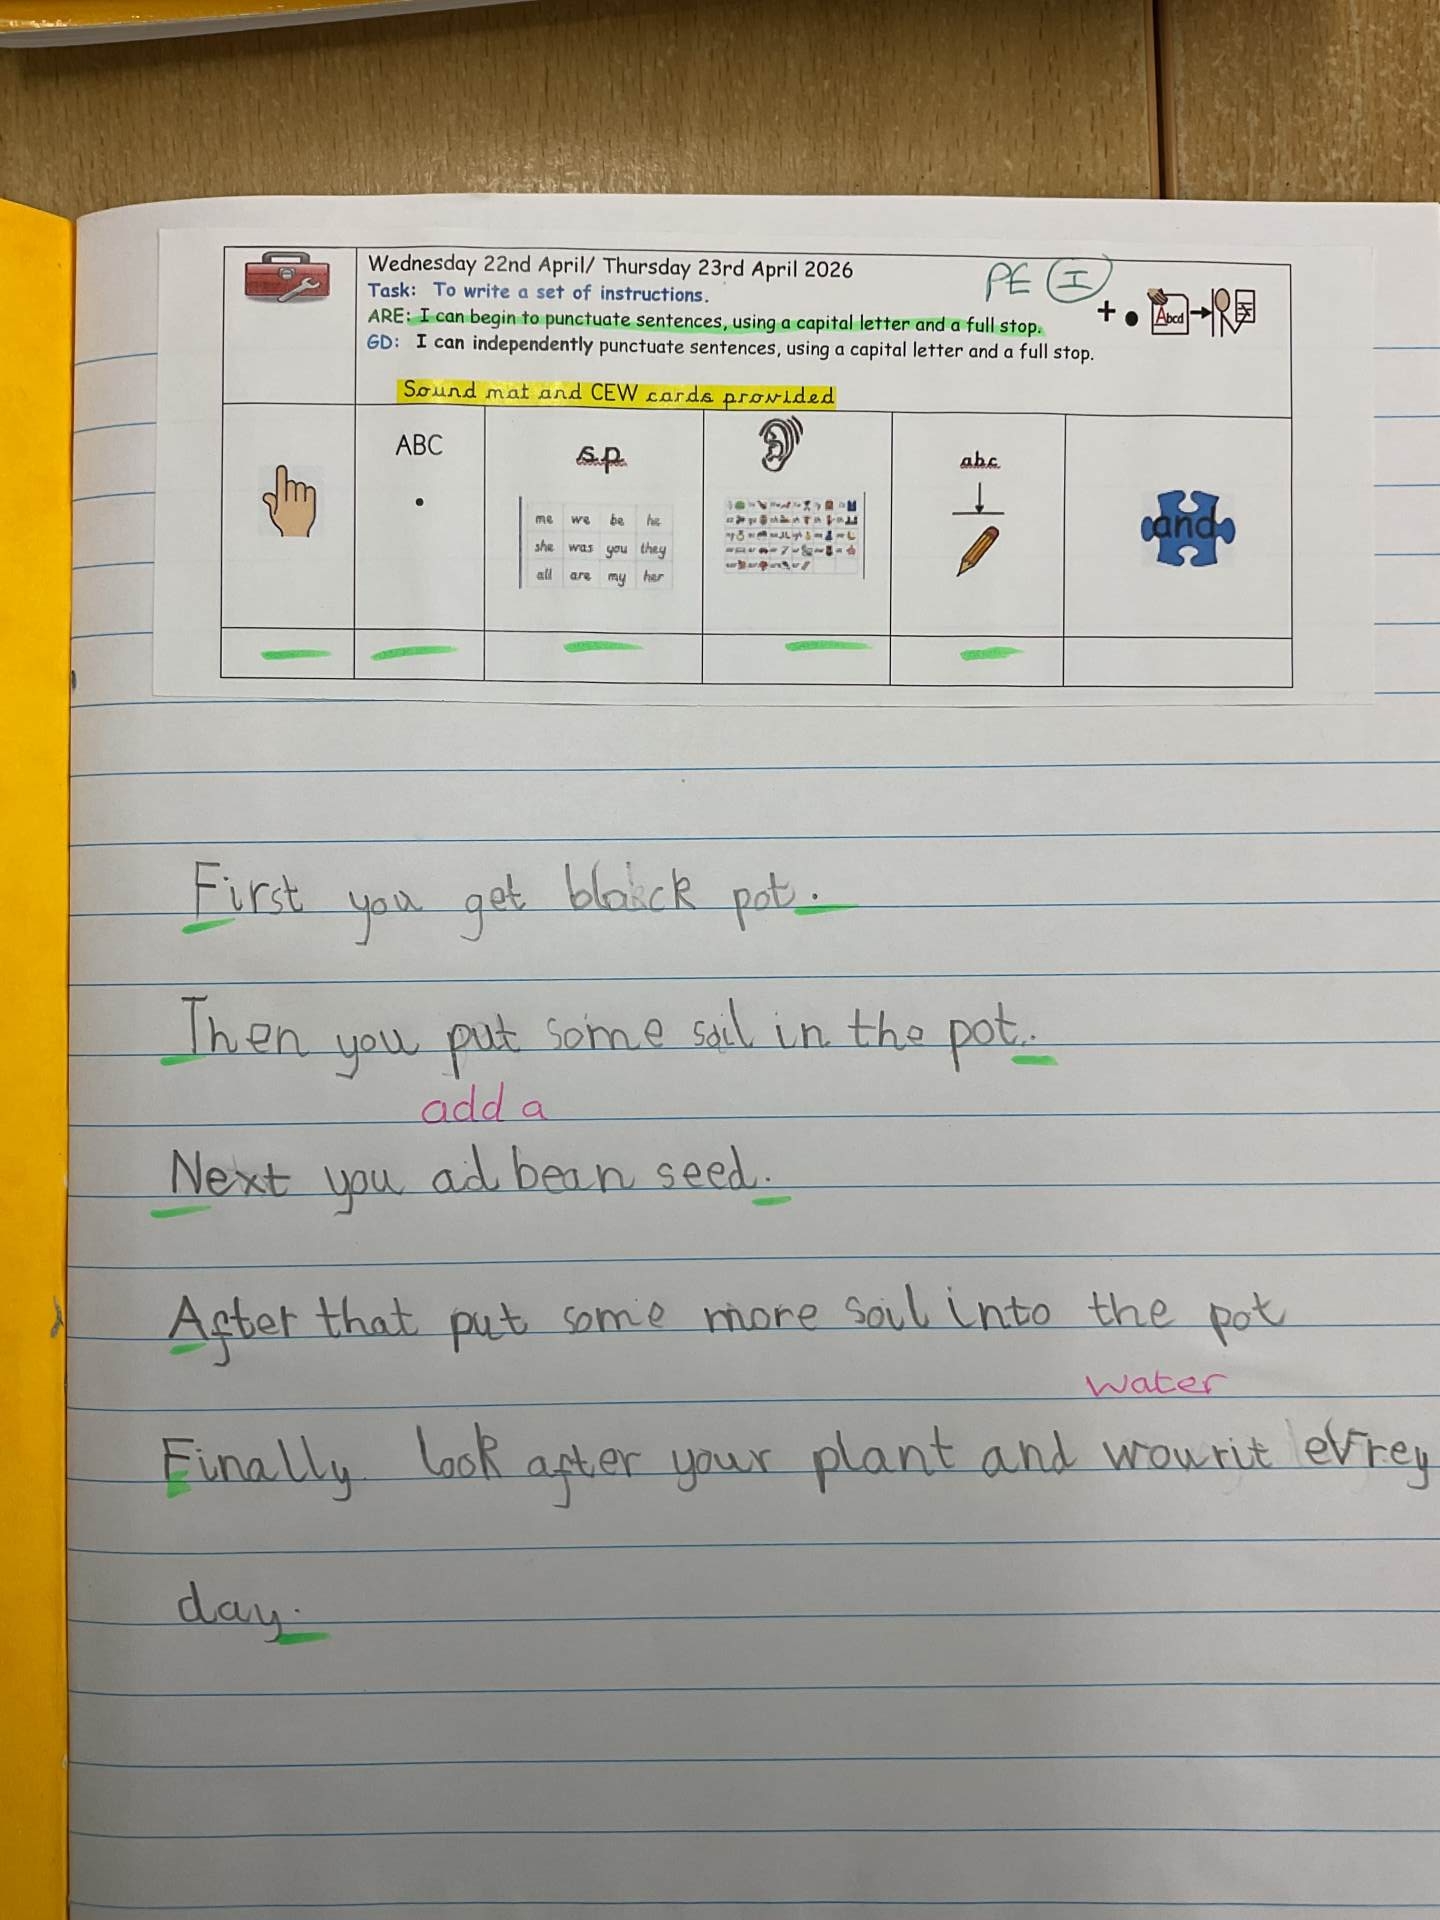 Wednesday 22nd April/ Thursday 23rd April 2026
PE I
Task: To write a set of instructions.
ARE: I can begin to punctuate sentences, using a capital letter and a full stop.
GD: I can independently punctuate sentences, using a capital letter and a full stop.
+ . Abcd
Sound mat and CEW cards provided
ABC
.
s.p.
abc
and
me we be he
she was you they
all are my her
First you get blaick pot.
Then you put some soil in the pot.
add a
Next you ad bean seed.
After that put some more soil into the pot
water
Finally look after your plant and wourit evrey
day.